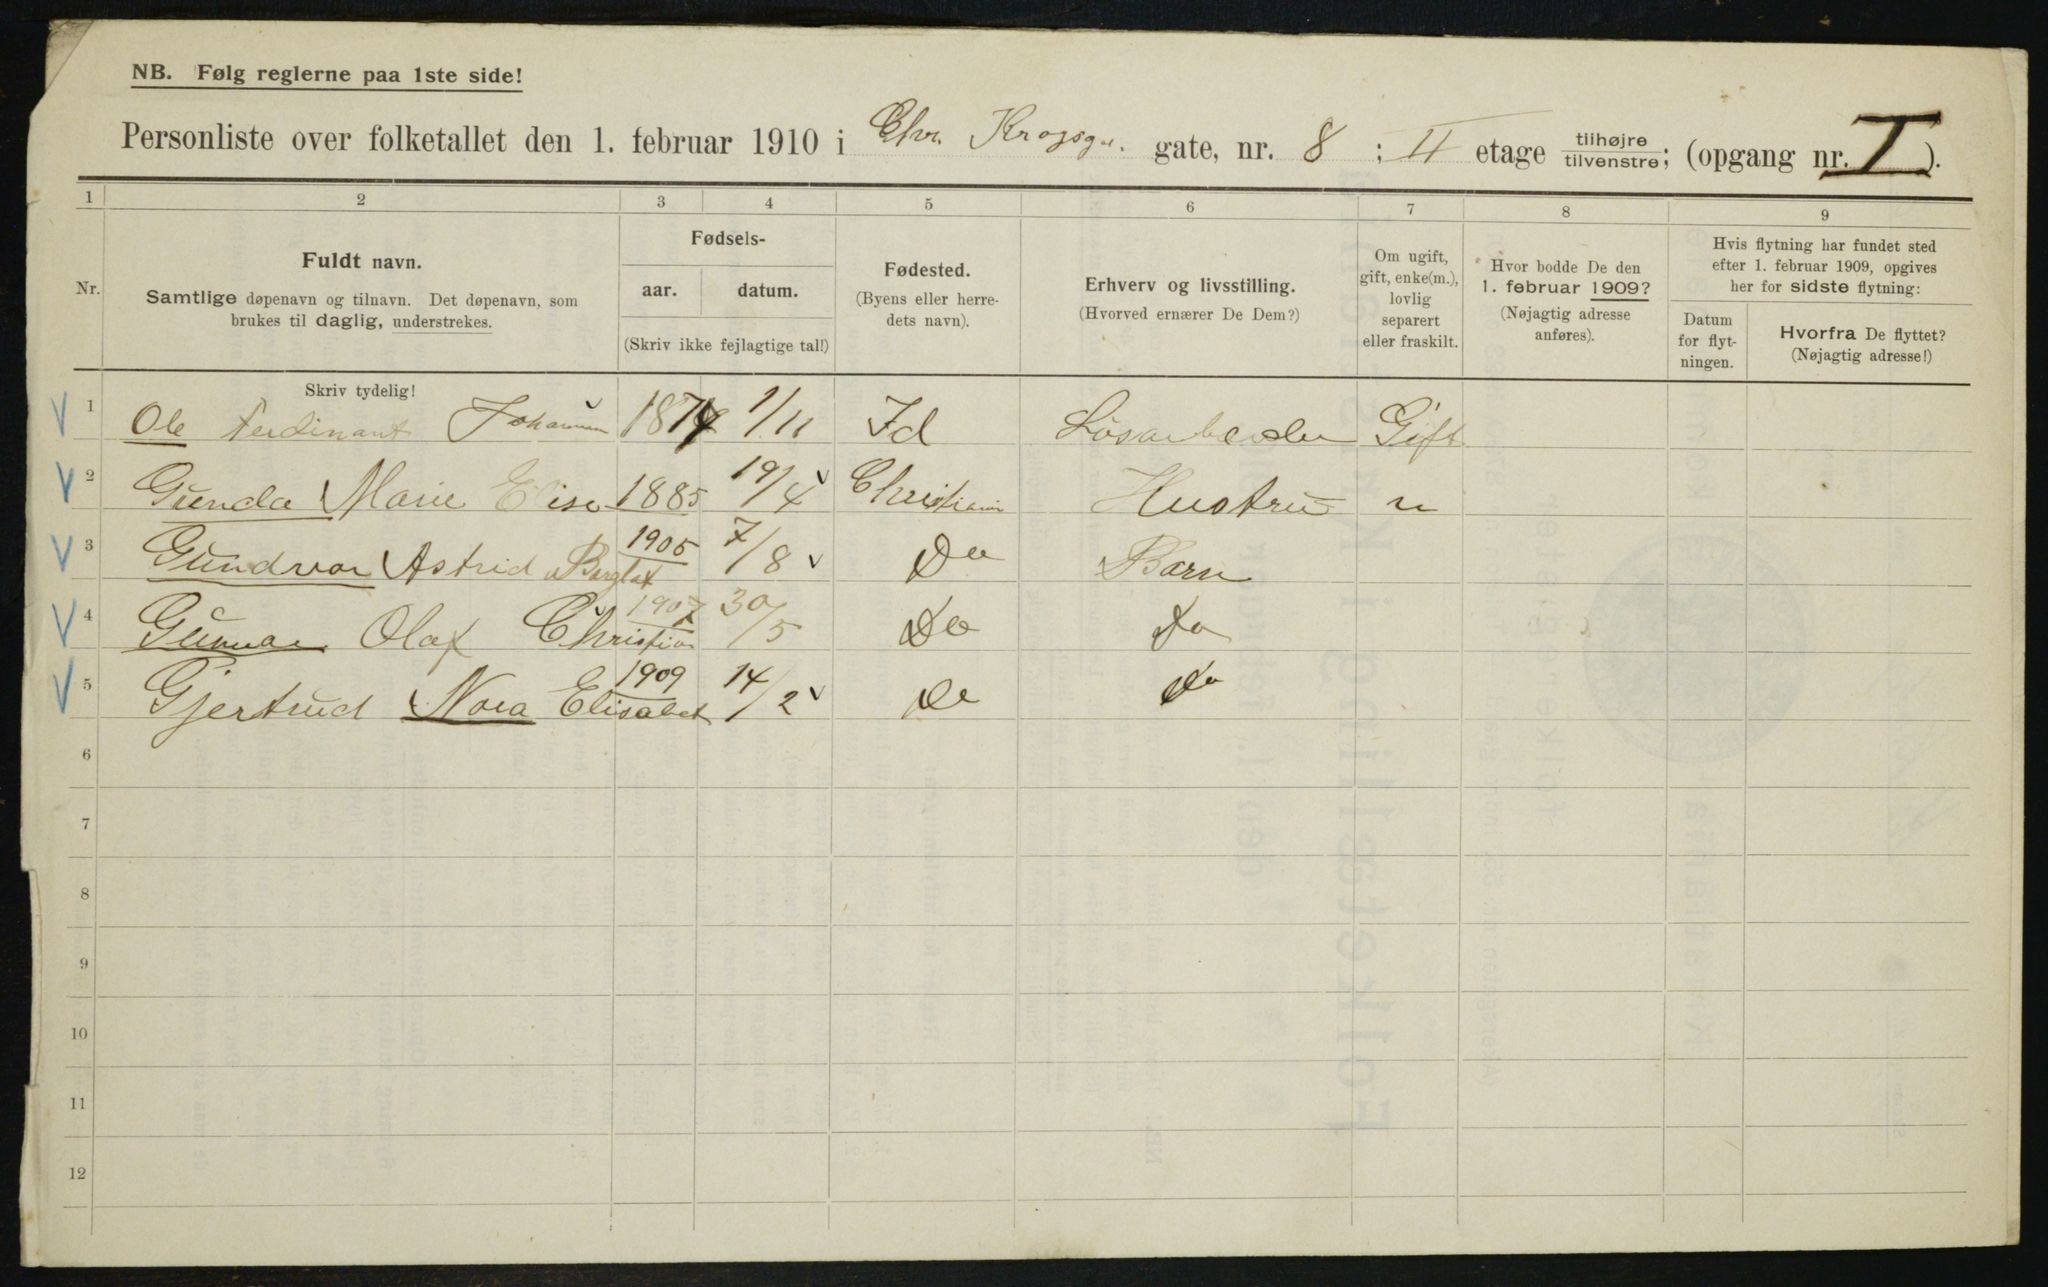 NB. Følg reglerne paa 1ste side!
Personliste over folketallet den 1. februar 1910 i Chr. Krogsgt. gate, nr. 8 : II etage tilhøjre tilvenstre; (opgang nr. I).
1 2 3 4 5 6 7 8 9
Nr.
Fuldt navn.
Samtlige døpenavn og tilnavn. Det døpenavn, som
brukes til daglig, understrekes.
Skriv tydelig!
Fødsels-
aar. datum.
(Skriv ikke fejlagtige tal!)
Fødested.
(Byens eller herre-
dets navn).
Erhverv og livsstilling.
(Hvorved ernærer De Dem?)
Om ugift,
gift, enke(m.),
lovlig
separert
eller fraskilt.
Hvor bodde De den
1. februar 1909?
(Nøjagtig adresse
anføres).
Hvis flytning har fundet sted
efter 1. februar 1909, opgives
her for sidste flytning:
Datum
for flyt-
ningen.
Hvorfra De flyttet?
(Nøjagtig adresse!)
1 Ole Ferdinant Johansen 1874 1/11 Id Løsarbeider Gift
2 Gunda Marie Elise 1885 19/4 Christiania Hustru "
3 Gundvor Astrid 1905 7/8 Do Barn
4 Gunnar Olaf Christian 1907 30/5 Do Do
5 Gjertrud Nora Elisabet 1909 14/2 Do Do
6
7
8
9
10
11
12